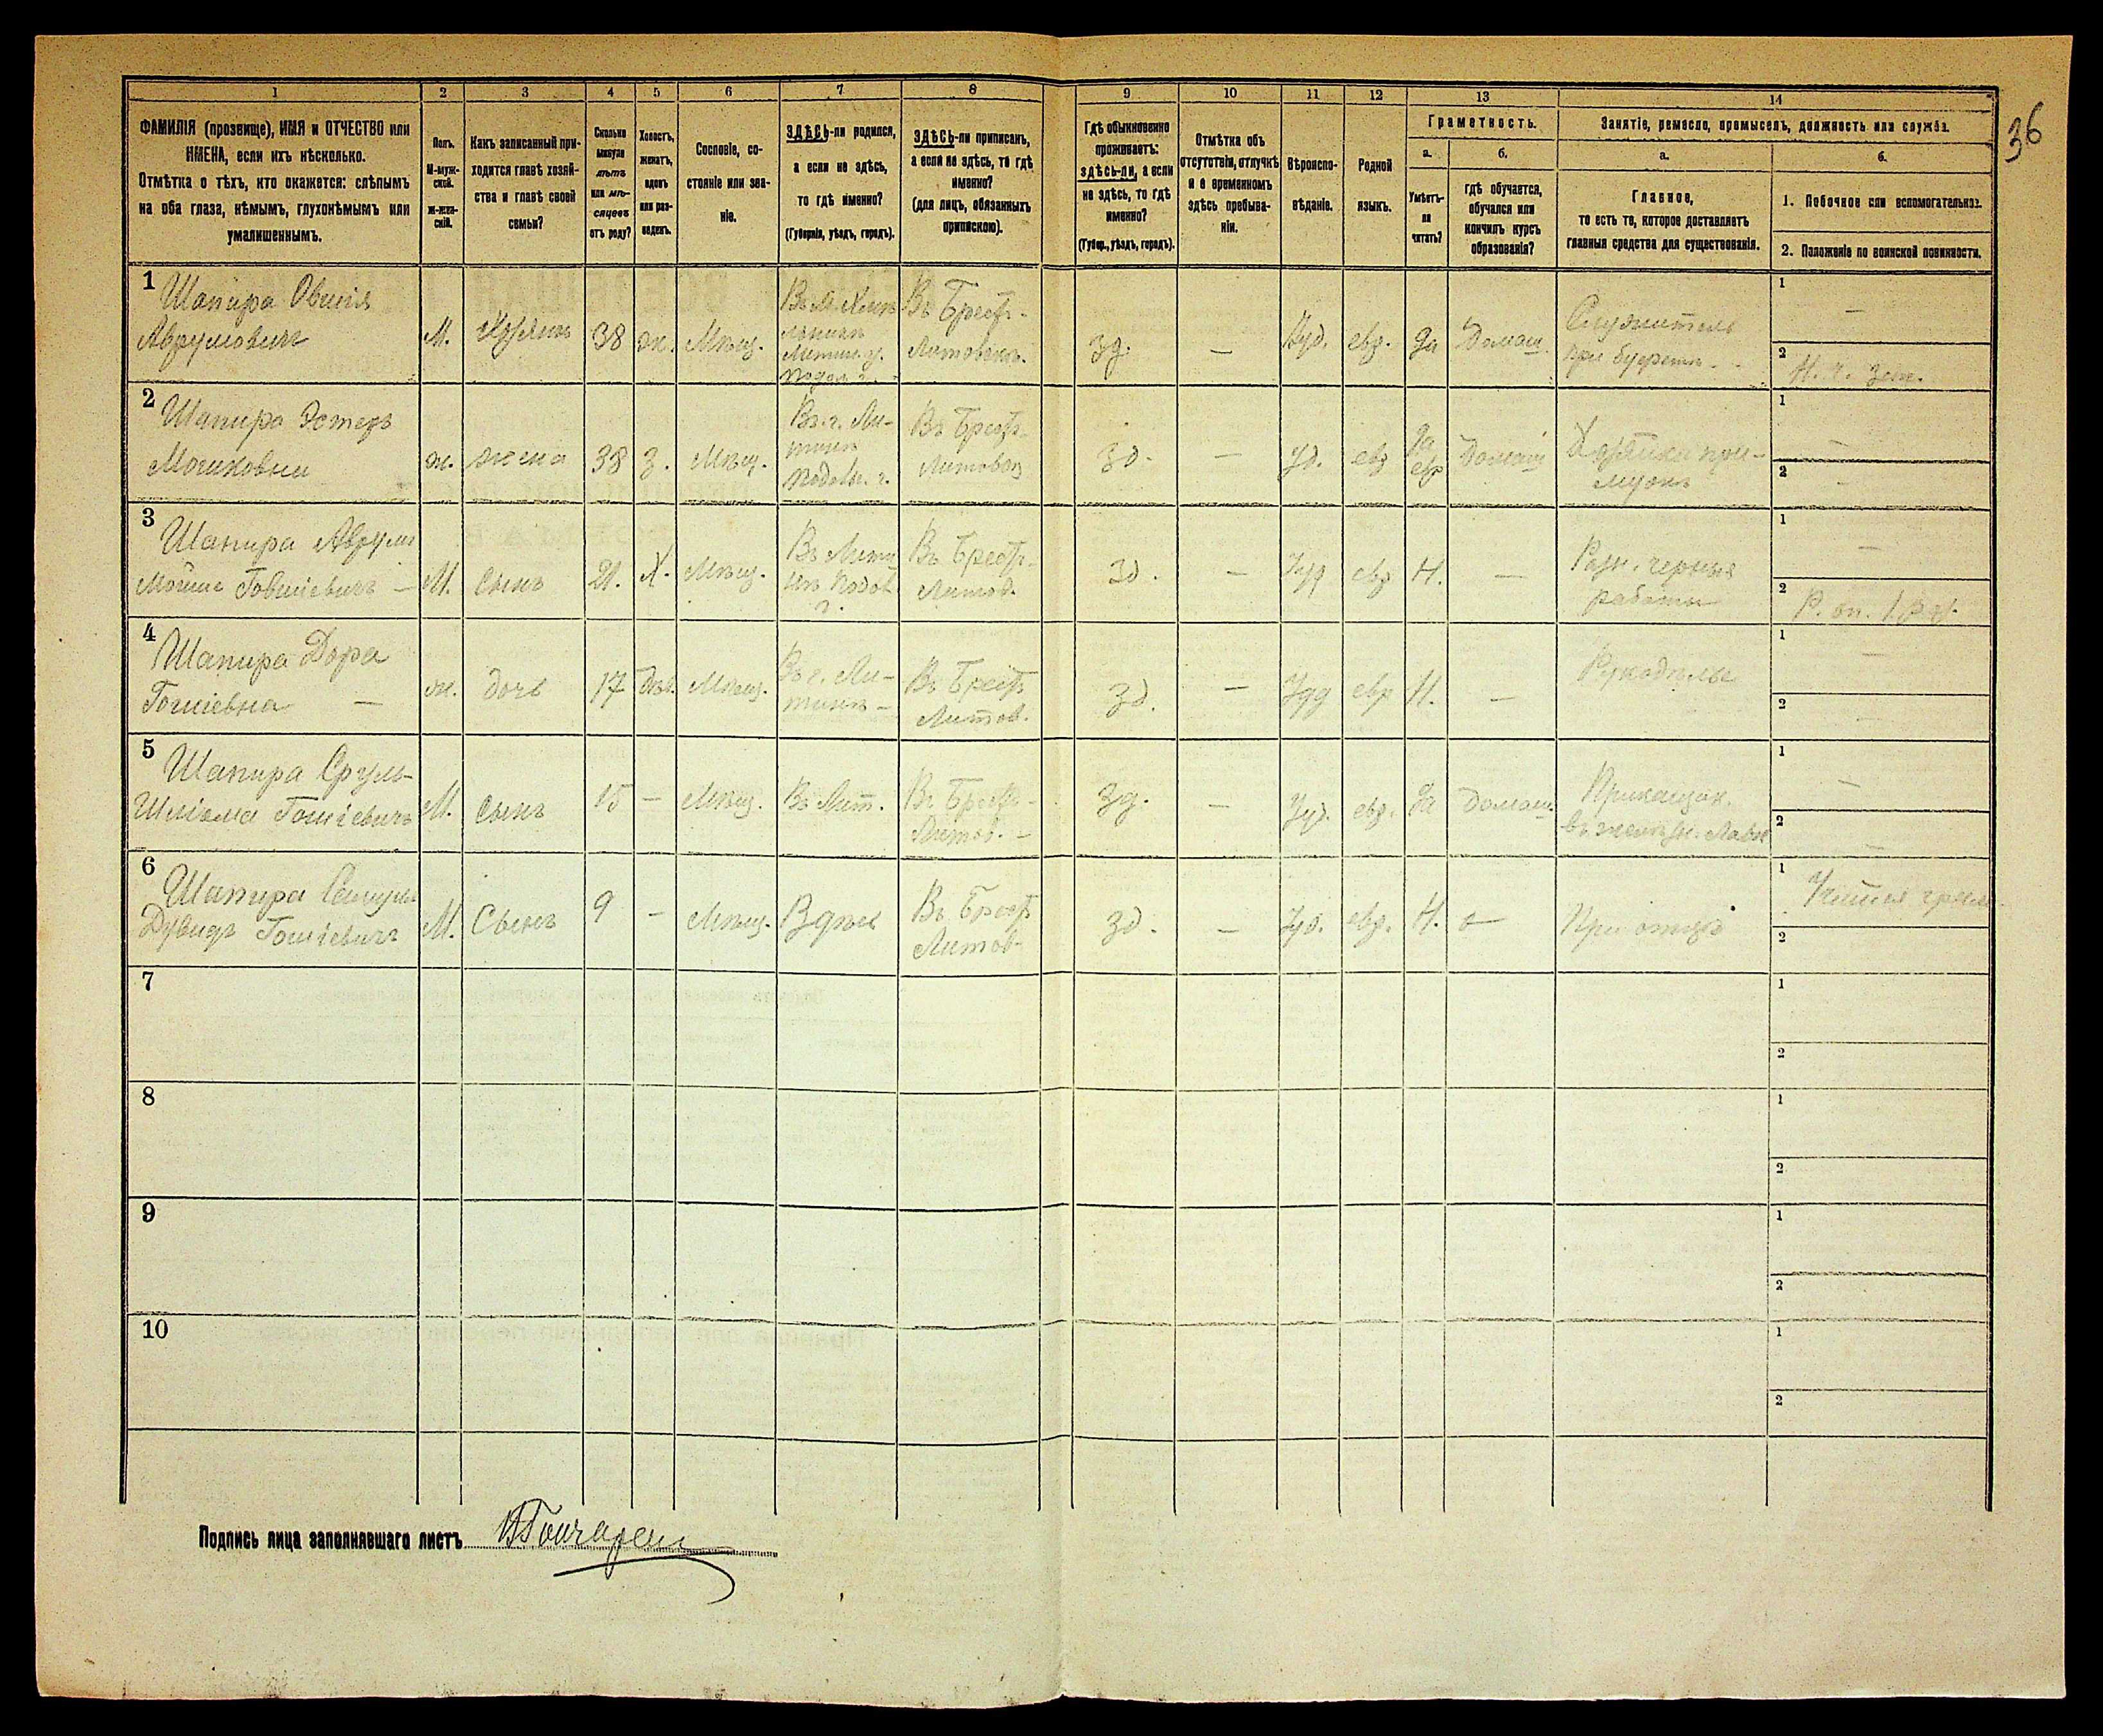 36
1
2
3
4
5
6
7
8
9
10
11
12
13
14
ФАМИЛІЯ (прозвище), ИМЯ и ОТЧЕСТВО или
ИМЕНА, если ихъ нѣсколько.
Отмѣтка о тѣхъ, кто окажется: слѣпымъ
на оба глаза, нѣмымъ, глухонѣмымъ или
умалишеннымъ.
Полъ.
М-муж-
ской.
Ж-жен-
скій.
Какъ записанный при-
ходится главѣ хозяй-
ства и главѣ своей
семьи?
Сколько
минуло
лѣтъ
или мѣ-
сяцевъ
отъ роду?
Холостъ,
женатъ,
вдовъ
или раз-
веденъ.
Сословіе, со-
стояніе или зва-
ніе.
ЗДѢСЬ-ли родился,
а если не здѣсь,
то гдѣ именно?
(Губернія, уѣздъ, городъ).
ЗДѢСЬ-ли приписанъ,
а если не здѣсь, то гдѣ
именно?
(для лицъ, обязанныхъ
припискою).
Гдѣ обыкновенно
проживаетъ:
здѣсь-ли, а если
не здѣсь, то гдѣ
именно?
(Губер., уѣздъ, городъ).
Отмѣтка объ
отсутствіи, отлучкѣ
и о временномъ
здѣсь пребыва-
ніи.
Вѣроиспо-
вѣданіе.
Родной
языкъ.
Грамотность.
а.
Умѣетъ-
ли
читать?
б.
гдѣ обучается,
обучался или
кончилъ курсъ
образованія?
Занятіе, ремесло, промыселъ, должность или служба.
а.
Главное,
то есть то, которое доставляетъ
главныя средства для существованія.
б.
1. Побочное или вспомогательное.
2. Положеніе по воинской повинности.
1
Шапира Овшія
Аврумовичъ
М.
38
ж.
Мѣщ.
Въ Брест-
Литовскъ.
зд.
—
Іуд.
евр.
да
Домаш.
Служитель
при буфетѣ
1
—
2
2
Шапира Эстеръ
Мошковна
ж.
жена
38
З.
Мѣщ.
Въ г. Ли-
тинѣ
Подольс. г.
Въ Брест-
Литовск
зд.
—
Іуд.
евр
да
евр
Домаш
Хозяйка при
мужѣ
1
—
2
—
3
Шапира Аврумъ
Мойше Говшіевичъ —
М.
сынъ
21.
Х.
Мѣщ.
Въ Лити
нѣ Подол
г.
Въ Брест-
Литов.
зд.
—
Іуд
евр
Н.
—
Разн. черныя
работы
1
—
2
4
Шапира Дора
Гошіевна —
ж.
дочь
17
Дѣв.
Мѣщ.
Въ г. Ли-
тинѣ —
Въ Брест
Литов.
зд.
—
Іуд
евр
Н.
—
Рукодѣлье
1
—
2
5
Шапира Сруль-
Шліома Гошіевичъ
М.
сынъ
15
—
Мѣщ.
Въ Лит.
Въ Брест-
Литов. —
зд.
—
Іуд.
евр.
да
Домаш.
Прикащик.
въ желѣзн. Лавк
1
—
2
—
6
Шапира Самуль
Дувидъ Гошіевичъ
М.
Сынъ
9
—
Мѣщ.
Здѣсь
Въ Брест
Литов-
зд.
—
Іуд.
евр.
Н.
—
При отцѣ
1
Учится
2
7
1
2
8
1
2
9
1
2
10
1
2
Подпись лица заполнявшаго листъ